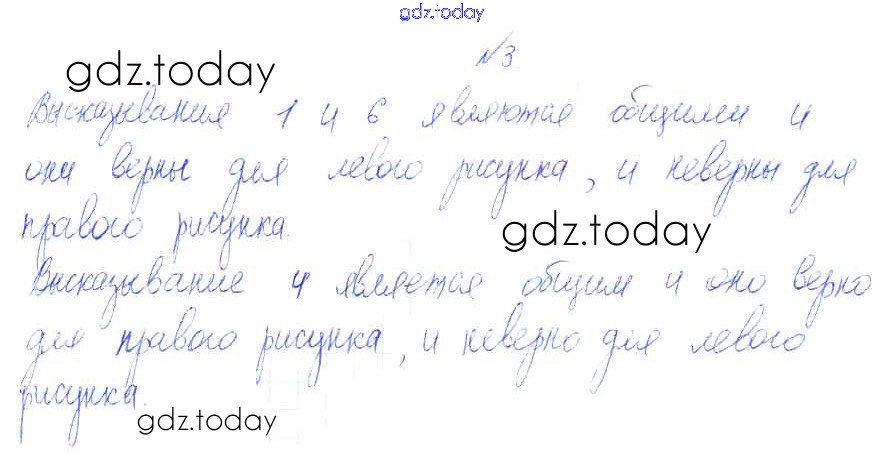 gdz.today
№3
gdz.today
Высказывания 1 и 6 являются общими и
они верны для левого рисунка, и неверны для
правого рисунка.
gdz.today
Высказывание 4 является общим и оно верно
для правого рисунка, и неверно для левого
рисунка.
gdz.today